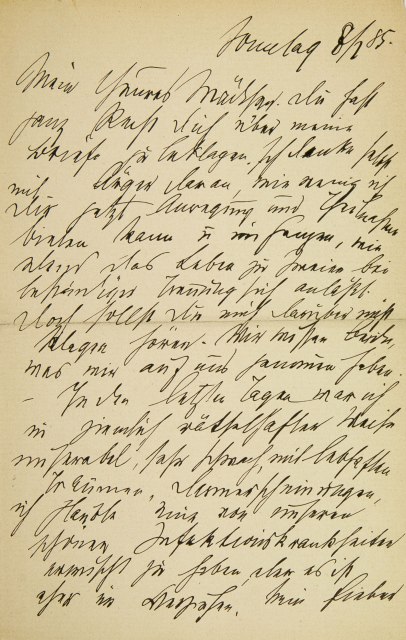 Sonntag 8/2 85.
Mein theures Mädchen. Du hast
ganz Recht Dich über meine
Briefe zu beklagen. Ich denke selbst
mit daran, wie wenig ich
Dir jetzt Anregung und
bieten kann u wie
das Leben zu zweien bei
beständiger Trennung sich anläßt.
Doch sollst Du mich darüber nicht
klagen hören. Wir wissen beide,
was wir auf uns genommen haben.
– In den letzten Tagen war ich
in ziemlich rätselhafter Weise
miserabel, sehr schwach, mit lebhaften
Träumen,
ich glaubte eine von unseren
schönen Infektionskrankheiten
erwischt zu haben, aber es ist
eher im Verziehen. Kein Fieber